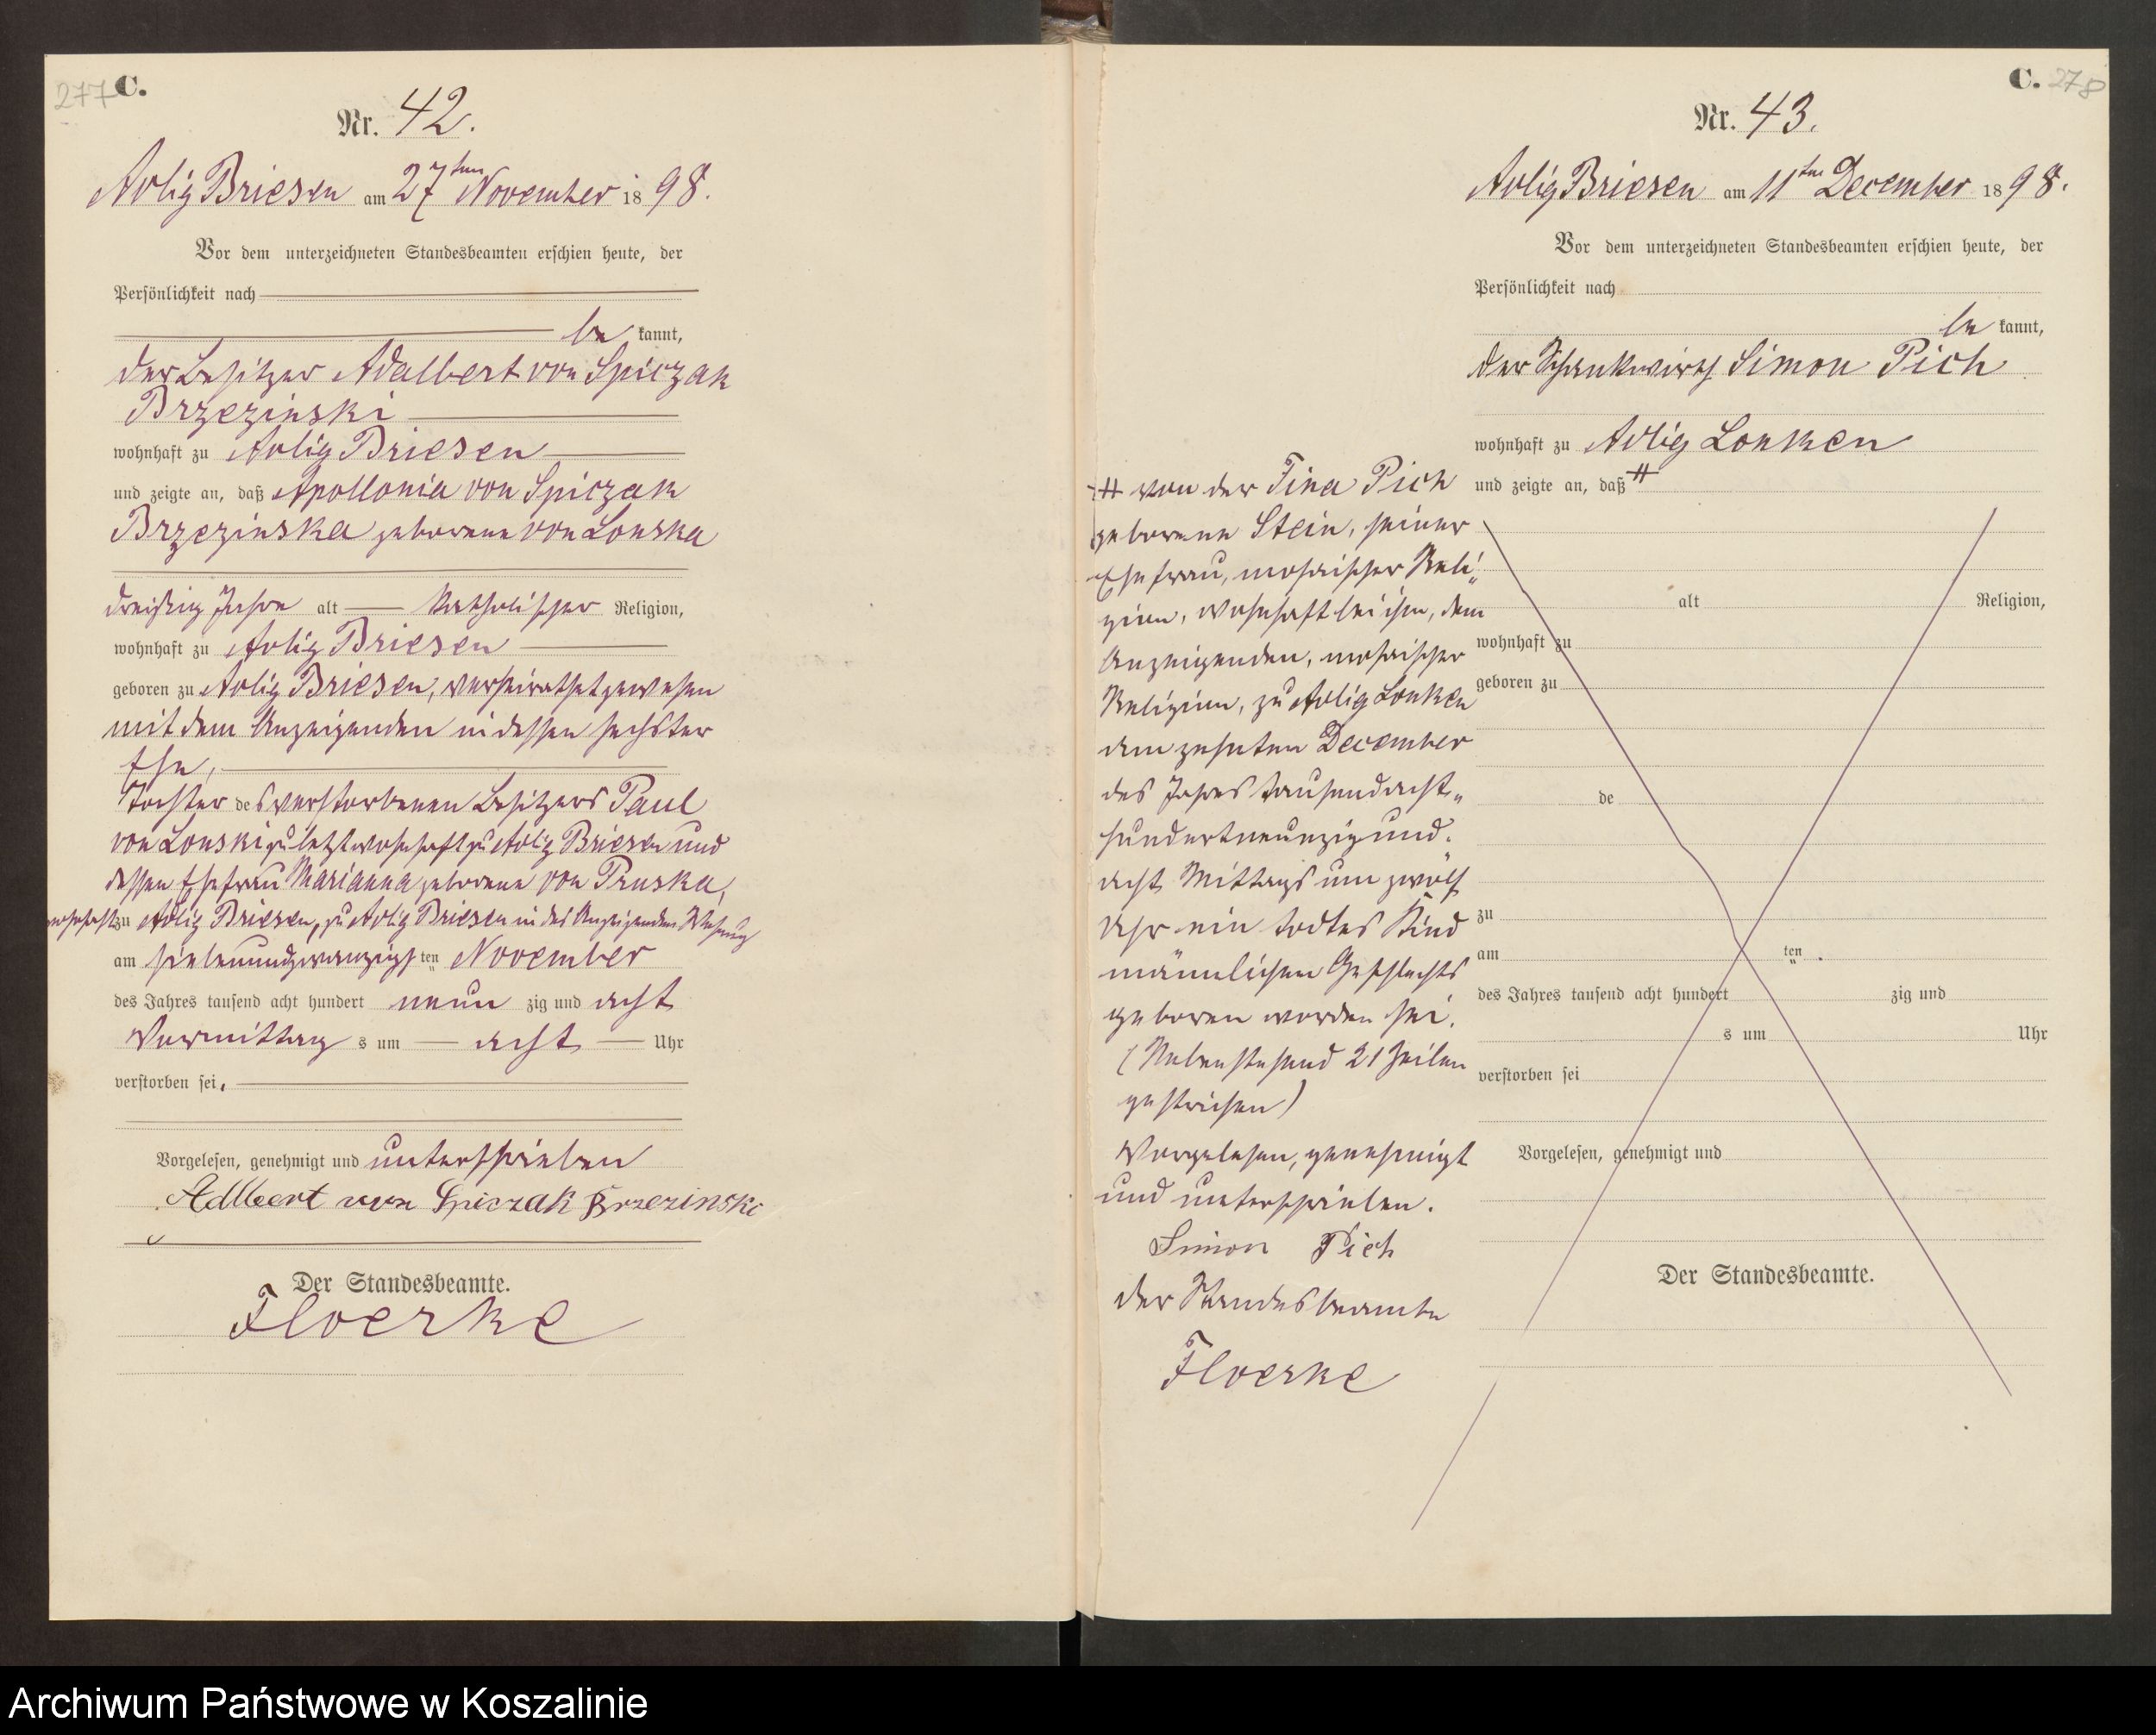 277 C.
Nr. 42.
Adlig Briesen am 27ten November 1898.
Vor dem unterzeichneten Standesbeamten erschien heute, der
Persönlichkeit nach
be kannt,
der Besitzer Adalbert von Spiczak
Brzezinski
wohnhaft zu Adlig Briesen
und zeigte an, daß Apollonia von Spiczak
Brzezinska geborene von Lonska
dreißig Jahre alt katholischer Religion,
wohnhaft zu Adlig Briesen
geboren zu Adlig Briesen, verheirathet gewesen
mit dem Anzeigenden in dessen sechster
Ehe,
Tochter des verstorbenen Besitzers Paul
von Lonski zuletzt wohnhaft zu Adlig Briesen und
dessen Ehefrau Marianna geborene von Pruska,
wohnhaft zu Adlig Briesen, zu Adlig Briesen in des Anzeigenden Wohnung
am siebenundzwanzigsten November
des Jahres tausend acht hundert neun zig und acht
Vormittag s um acht Uhr
verstorben sei.
Vorgelesen, genehmigt und unterschrieben
Adlbert von Spiczak Brzezinski
Der Standesbeamte.
Floerke
C. 278
Nr. 43.
Adlig Briesen am 11ten December 1898.
Vor dem unterzeichneten Standesbeamten erschien heute, der
Persönlichkeit nach
be kannt,
der Schankwirth Simon Pich
wohnhaft zu Adlig Lonken
und zeigte an, daß #
# von der Tina Pich
geborene Stein, seiner
Ehefrau, mosaischer Reli-
gion, wohnhaft bei ihm, dem
Anzeigenden, mosaischer
Religion, zu Adlig Lonken
am zehnten December
des Jahres tausendacht-
hundertneunzigund-
acht Mittags um zwölf
Uhr ein todtes Kind
männlichen Geschlechts
geboren worden sei.
(Nebenstehend 21 Zeilen
gestrichen)
Vorgelesen, genehmigt
und unterschrieben.
Simon Pich
der Standesbeamte
Floerke
alt Religion,
wohnhaft zu
geboren zu
de
zu
am ten
des Jahres tausend acht hundert zig und
s um Uhr
verstorben sei
Vorgelesen, genehmigt und
Der Standesbeamte.
Archiwum Państwowe w Koszalinie